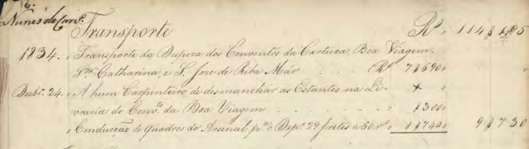 Nunes de Carv.º
Transporte R.s 114$185
1834. Transporte da Despeza dos Conventos da Cartuxa, Boa Viagem,
S.ta Catharina, e S. Jose de Riba Mar (R.s 7$690,
Dezb.º 24. A hum Carpinteiro de desmanchar as Estantes na Li-
vraria do Conv.to da Boa Viagem $300,
Conducção de Quadros do Arsenal p.ª o Dep.º 29 fretes a 60 r.s 1$740, 9$730